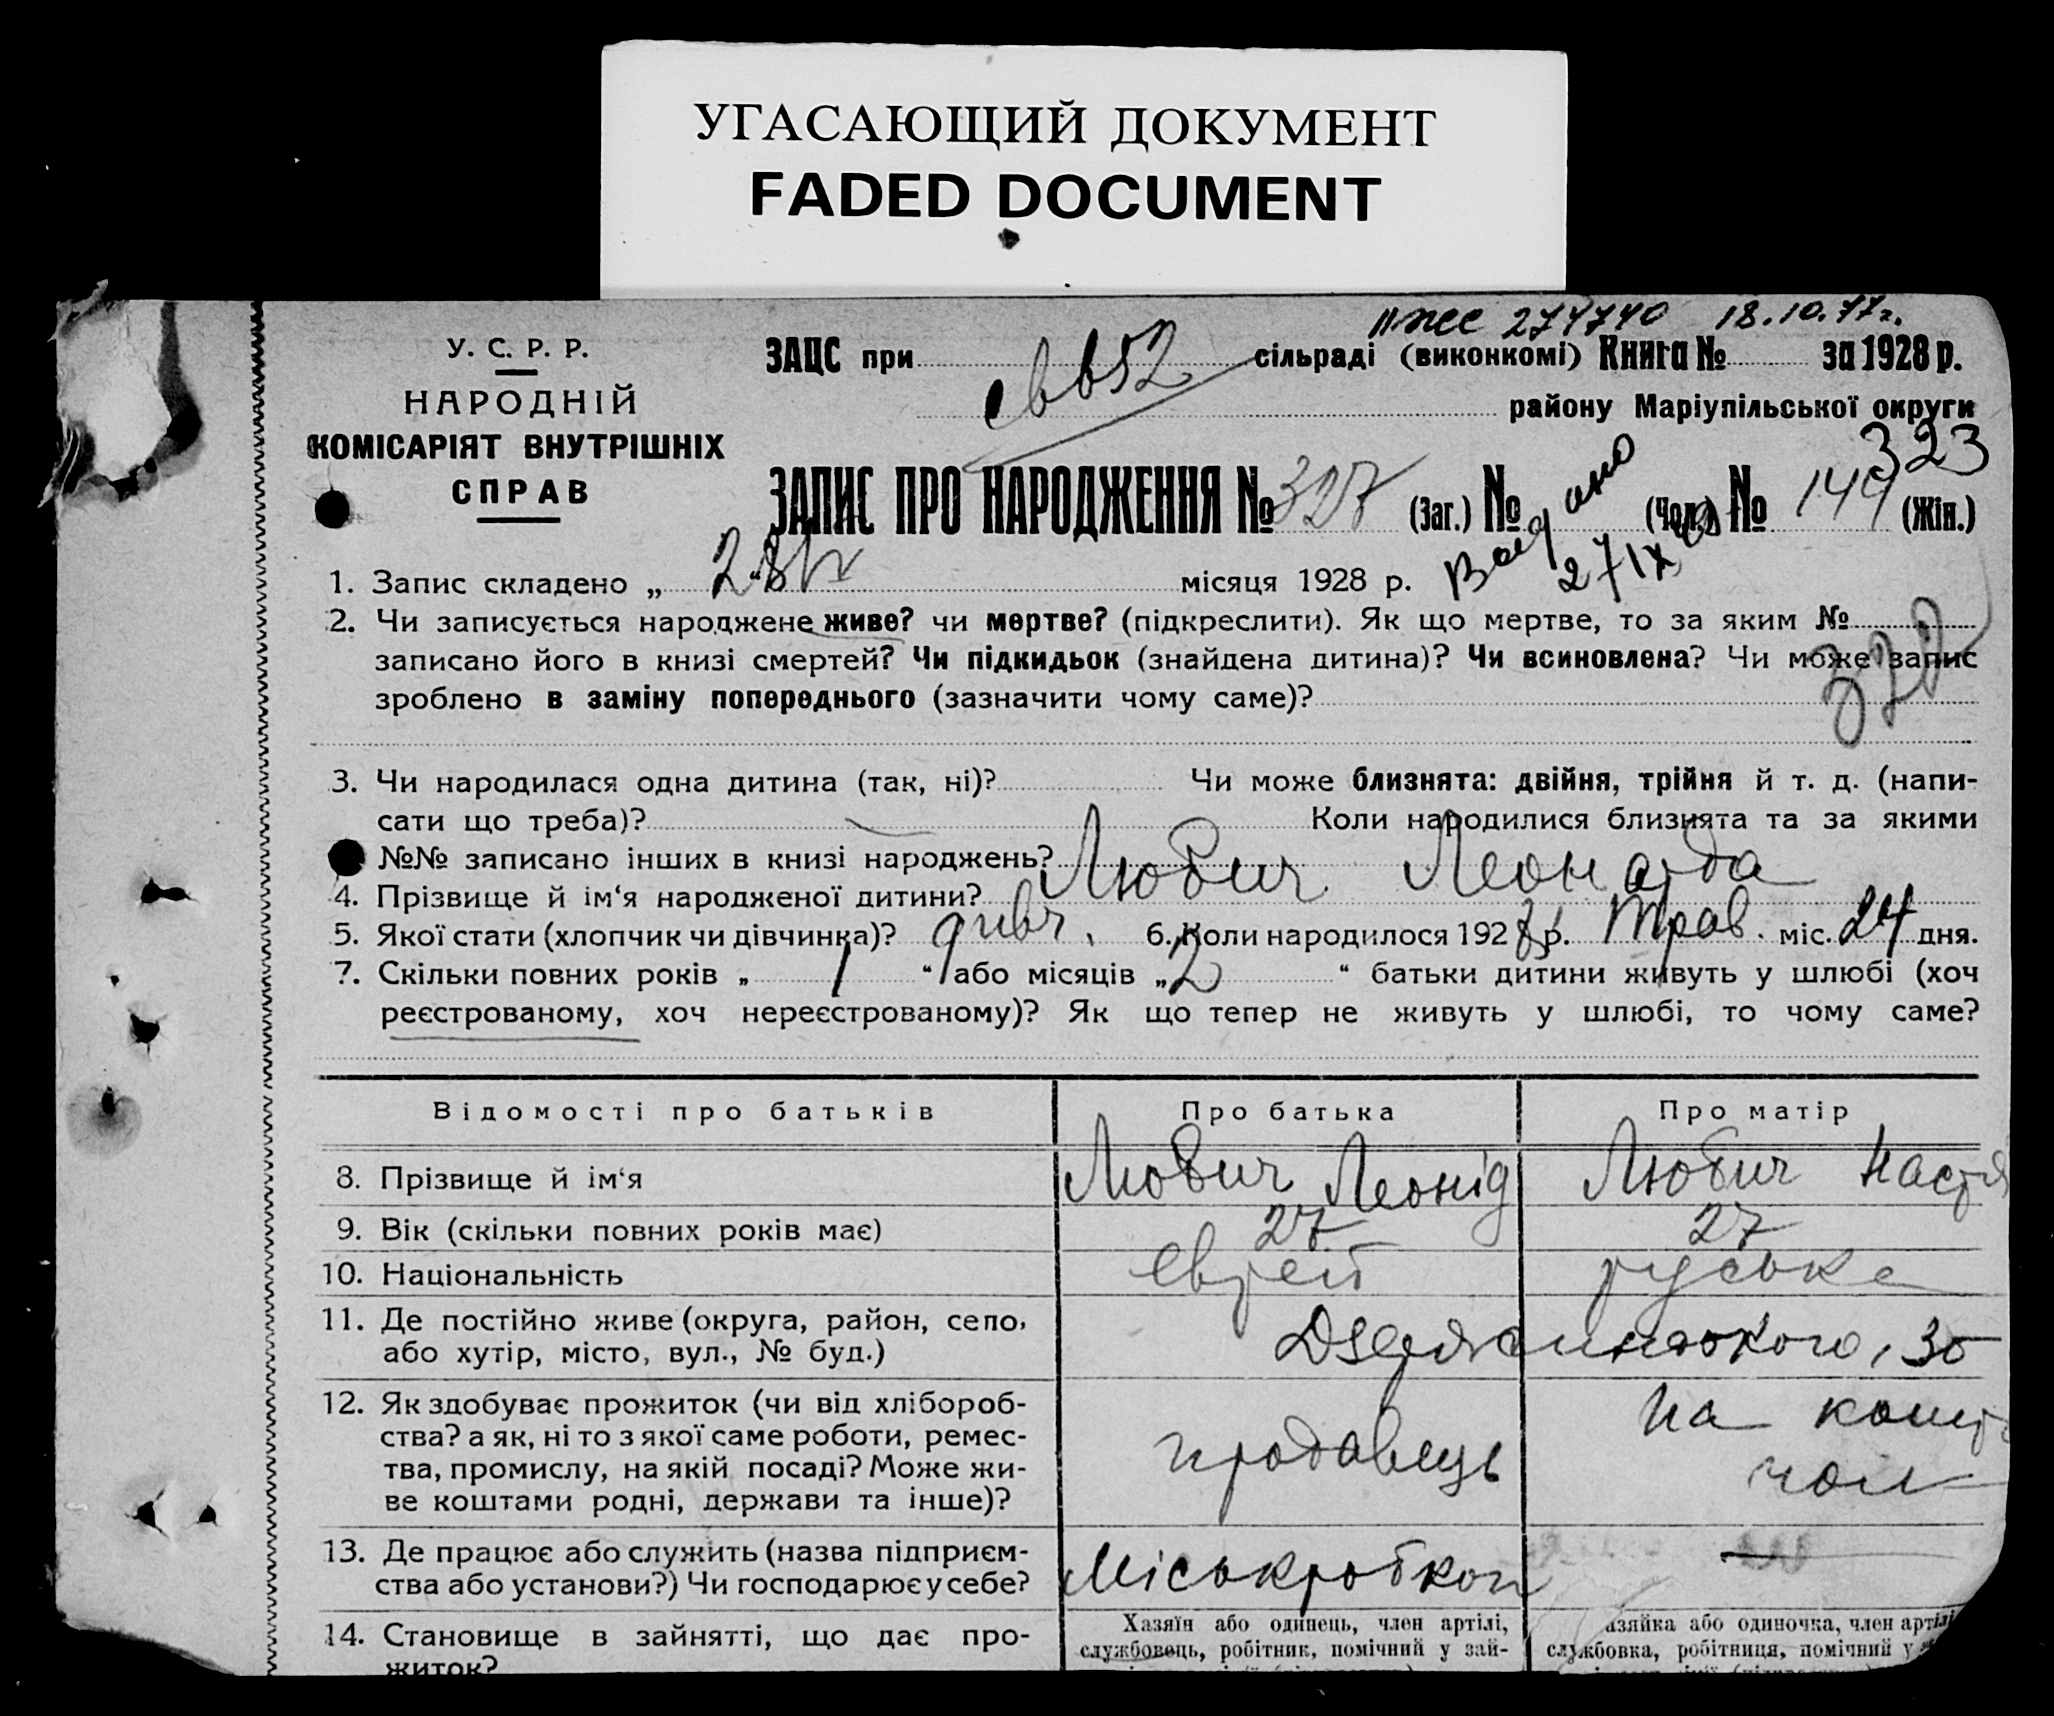 УГАСАЮЩИЙ ДОКУМЕНТ
FADED DOCUMENT
274740 18.10.77г.
У. С. Р. Р.
НАРОДНІЙ
КОМІСАРІЯТ ВНУТРІШНІХ
СПРАВ
ЗАЦС при сільраді (виконкомі) Книга № за 1928 р.
району Маріупільської округи
323
ЗАПИС ПРО НАРОДЖЕННЯ № 327 (Заг.) № (Чол.) № 149 (Жін.)
1. Запис складено „ місяця 1928 р.
2. Чи записується народжене живе? чи мертве? (підкреслити). Як що мертве, то за яким №
записано його в книзі смертей? Чи підкидьок (знайдена дитина)? Чи всиновлена? Чи може запис
зроблено в заміну попереднього (зазначити чому саме)?
3. Чи народилася одна дитина (так, ні)? Чи може близнята: двійня, трійня й т. д. (напи-
сати що треба)? Коли народилися близнята та за якими
№№ записано інших в книзі народжень?
4. Прізвище й ім‘я народженої дитини? Любич Леонарда
5. Якої стати (хлопчик чи дівчинка)? дивч. 6. Коли народилося 1928 р. Трав. міс. 24 дня.
7. Скільки повних років „ 1 “ або місяців „ 2 “ батьки дитини живуть у шлюбі (хоч
реєстрованому, хоч нереєстрованому)? Як що тепер не живуть у шлюбі, то чому саме?
Відомості про батьків Про батька Про матір
8. Прізвище й ім‘я Любич Леонід Любич Настя
9. Вік (скільки повних років має) 27 27
10. Національність еврей руська
11. Де постійно живе (округа, район, село,
або хутір, місто, вул., № буд.) Дзержинського, 35
12. Як здобуває прожиток (чи від хлібороб-
ства? а як, ні то з якої саме роботи, ремес-
тва, промислу, на якій посаді? Може жи-
ве коштами родні, держави та інше)? продавець на кошт чол
13. Де працює або служить (назва підприєм-
ства або установи?) Чи господарює у себе? Міськробкоп —
14. Становище в зайнятті, що дає про-
житок?
Хазяїн або одинець, член артілі,
службовець, робітник, помічний у зай-
азяйка або одиночка, член артілі
службовка, робітниця, помічний у